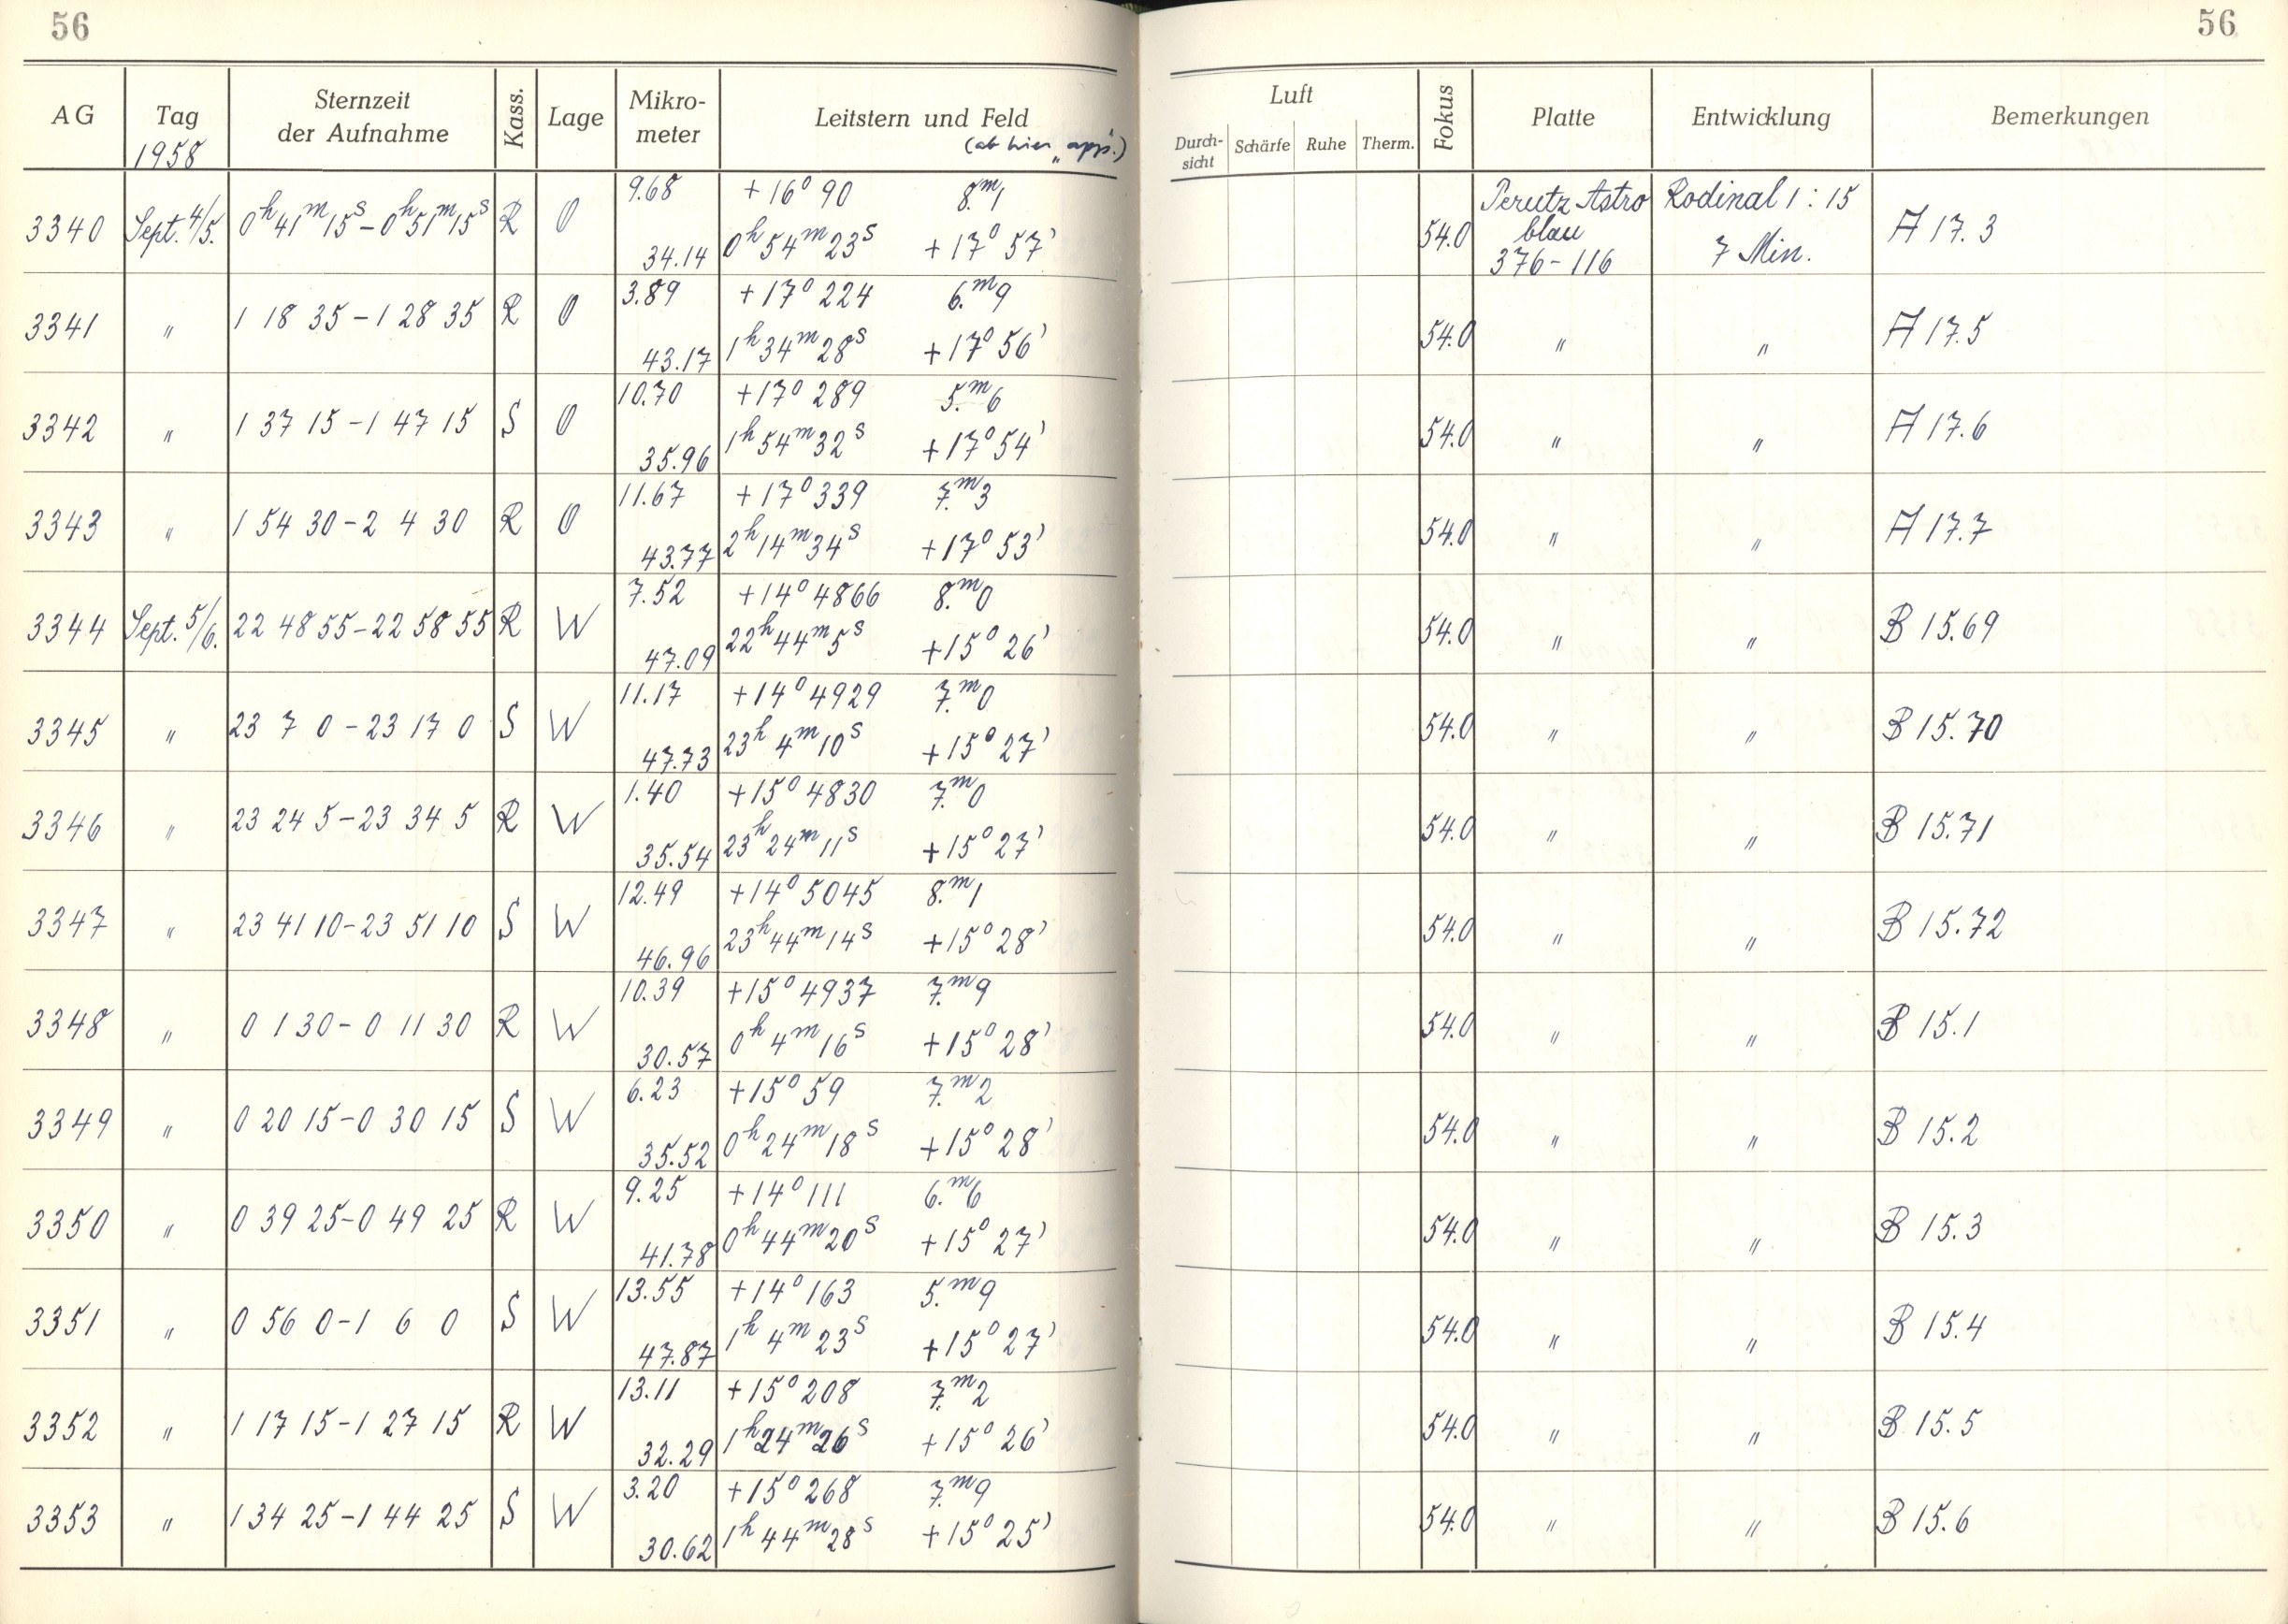 56 56
AG Tag 1958 Sternzeit der Aufnahme Kass. Lage Mikro-meter Leitstern und Feld (ab hier „app“.) Luft Durch-sicht Schärfe Ruhe Therm. Fokus Platte Entwicklung Bemerkungen
9.68 +16° 90 8.m1 Perutz Astro Rodinal 1:15
3340 Sept. 4/5. 0h 41m 15s – 0h 51m 15s R O 54.0 blau A 17.3
34.14 0h 54m 23s +17° 57' 376-116 7 Min.
3.89 +17° 224 6.m9
3341 " 1 18 35 – 1 28 35 R O 54.0 " " A 17.5
43.17 1h 34m 28s +17° 56'
10.70 +17° 289 5.m6
3342 " 1 37 15 – 1 47 15 S O 54.0 " " A 17.6
35.96 1h 54m 32s +17° 54'
11.67 +17° 339 7.m3
3343 " 1 54 30 – 2 4 30 R O 54.0 " " A 17.7
43.77 2h 14m 34s +17° 53'
7.52 +14° 4866 8.m0
3344 Sept. 5/6. 22 48 55 – 22 58 55 R W 54.0 " " B 15.69
47.09 22h 44m 5s +15° 26'
11.17 +14° 4929 7.m0
3345 " 23 7 0 – 23 17 0 S W 54.0 " " B 15.70
47.73 23h 4m 10s +15° 27'
1.40 +15° 4830 7.m0
3346 " 23 24 5 – 23 34 5 R W 54.0 " " B 15.71
35.54 23h 24m 11s +15° 27'
12.49 +14° 5045 8.m1
3347 " 23 41 10 – 23 51 10 S W 54.0 " " B 15.72
46.96 23h 44m 14s +15° 28'
10.39 +15° 4937 7.m9
3348 " 0 1 30 – 0 11 30 R W 54.0 " " B 15.1
30.57 0h 4m 16s +15° 28'
6.23 +15° 59 7.m2
3349 " 0 20 15 – 0 30 15 S W 54.0 " " B 15.2
35.52 0h 24m 18s +15° 28'
9.25 +14° 111 6.m6
3350 " 0 39 25 – 0 49 25 R W 54.0 " " B 15.3
41.78 0h 44m 20s +15° 27'
13.55 +14° 163 5.m9
3351 " 0 56 0 – 1 6 0 S W 54.0 " " B 15.4
47.87 1h 4m 23s +15° 27'
13.11 +15° 208 7.m2
3352 " 1 17 15 – 1 27 15 R W 54.0 " " B 15.5
32.29 1h 24m 26s +15° 26'
3.20 +15° 268 7.m9
3353 " 1 34 25 – 1 44 25 S W 54.0 " " B 15.6
30.62 1h 44m 28s +15° 25'